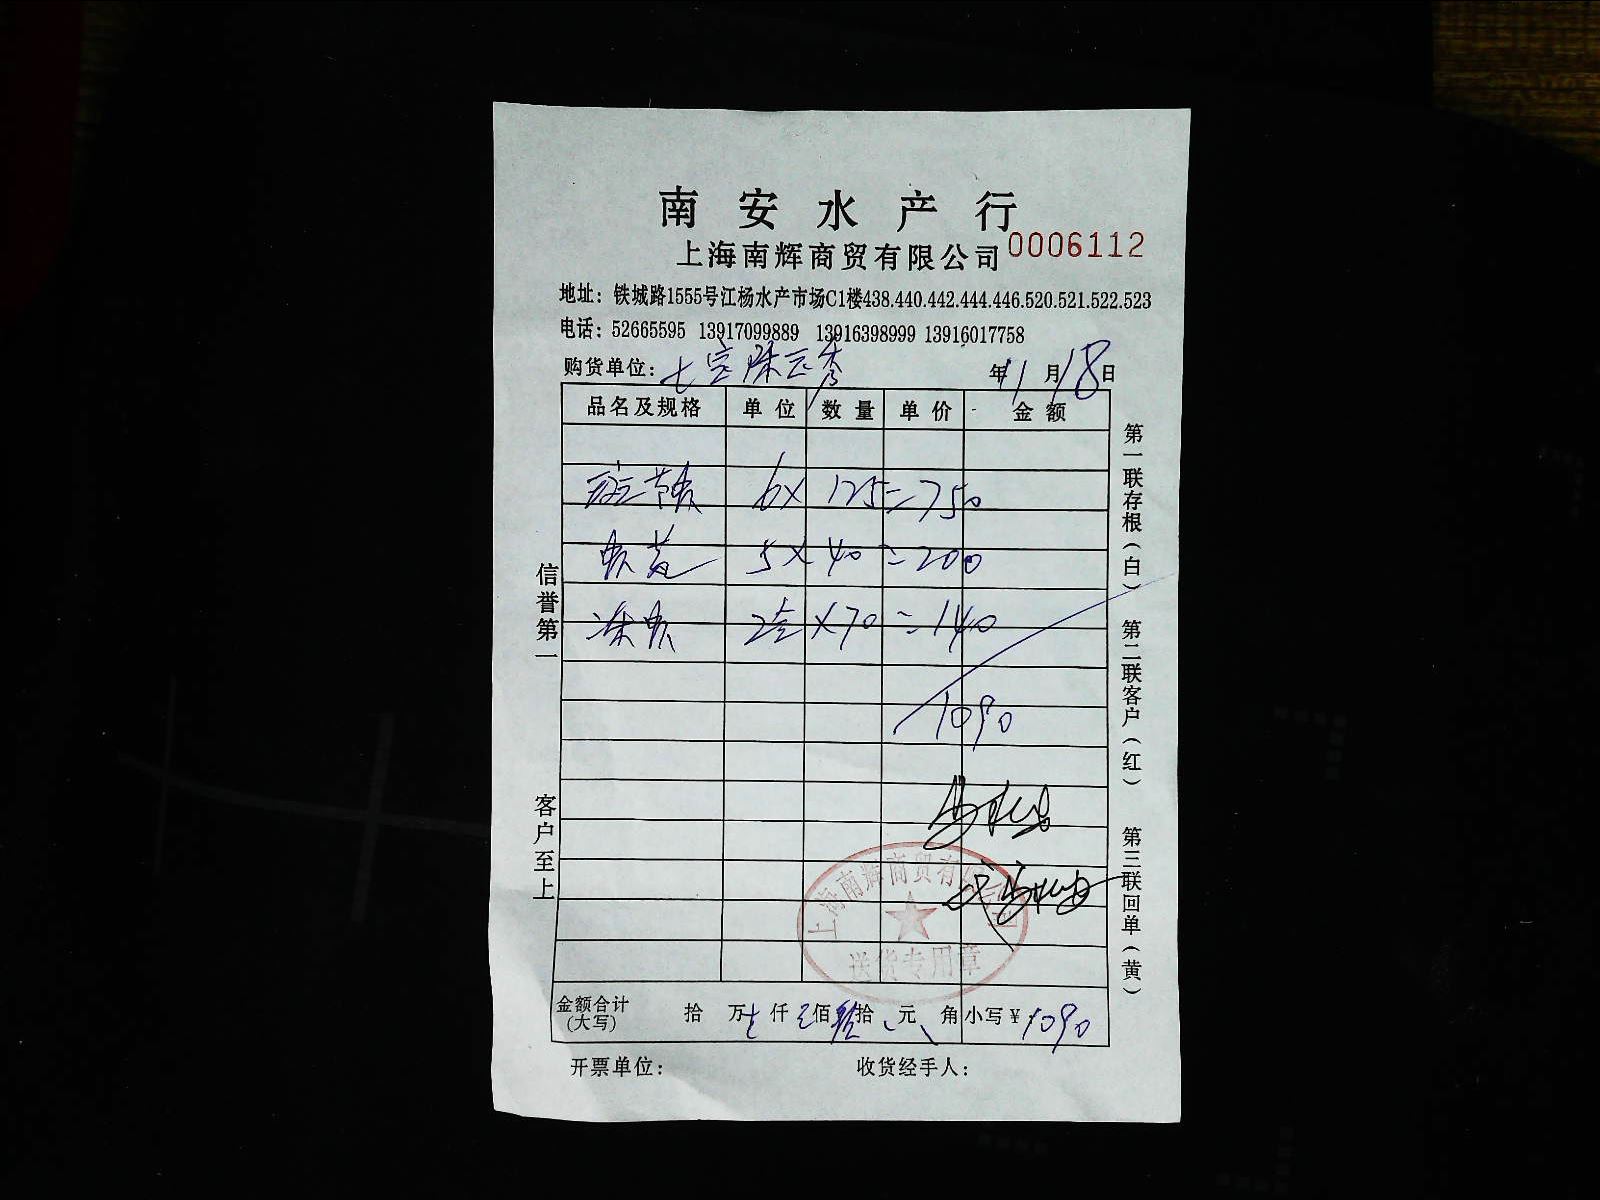 南安水产行
上海南辉商贸有限公司 0006112
地址：铁城路1555号江杨水产市场C1楼438.440.442.444.446.520.521.522.523
电话：52665595 13917099889 13916398999 13916017758
购货单位： 年 1 月 18 日
品名及规格 单位 数量 单价 金额
6 × 125 = 750
5 × 40 = 200
冻虾 2 × 70 = 140
1090
上海南辉商贸有限公司
送货专用章
金额合计 (大写) 拾 万 仟 佰 拾 元 角 小写￥1090
开票单位： 收货经手人：
信誉第一
客户至上
第一联存根（白）
第二联客户（红）
第三联回单（黄）